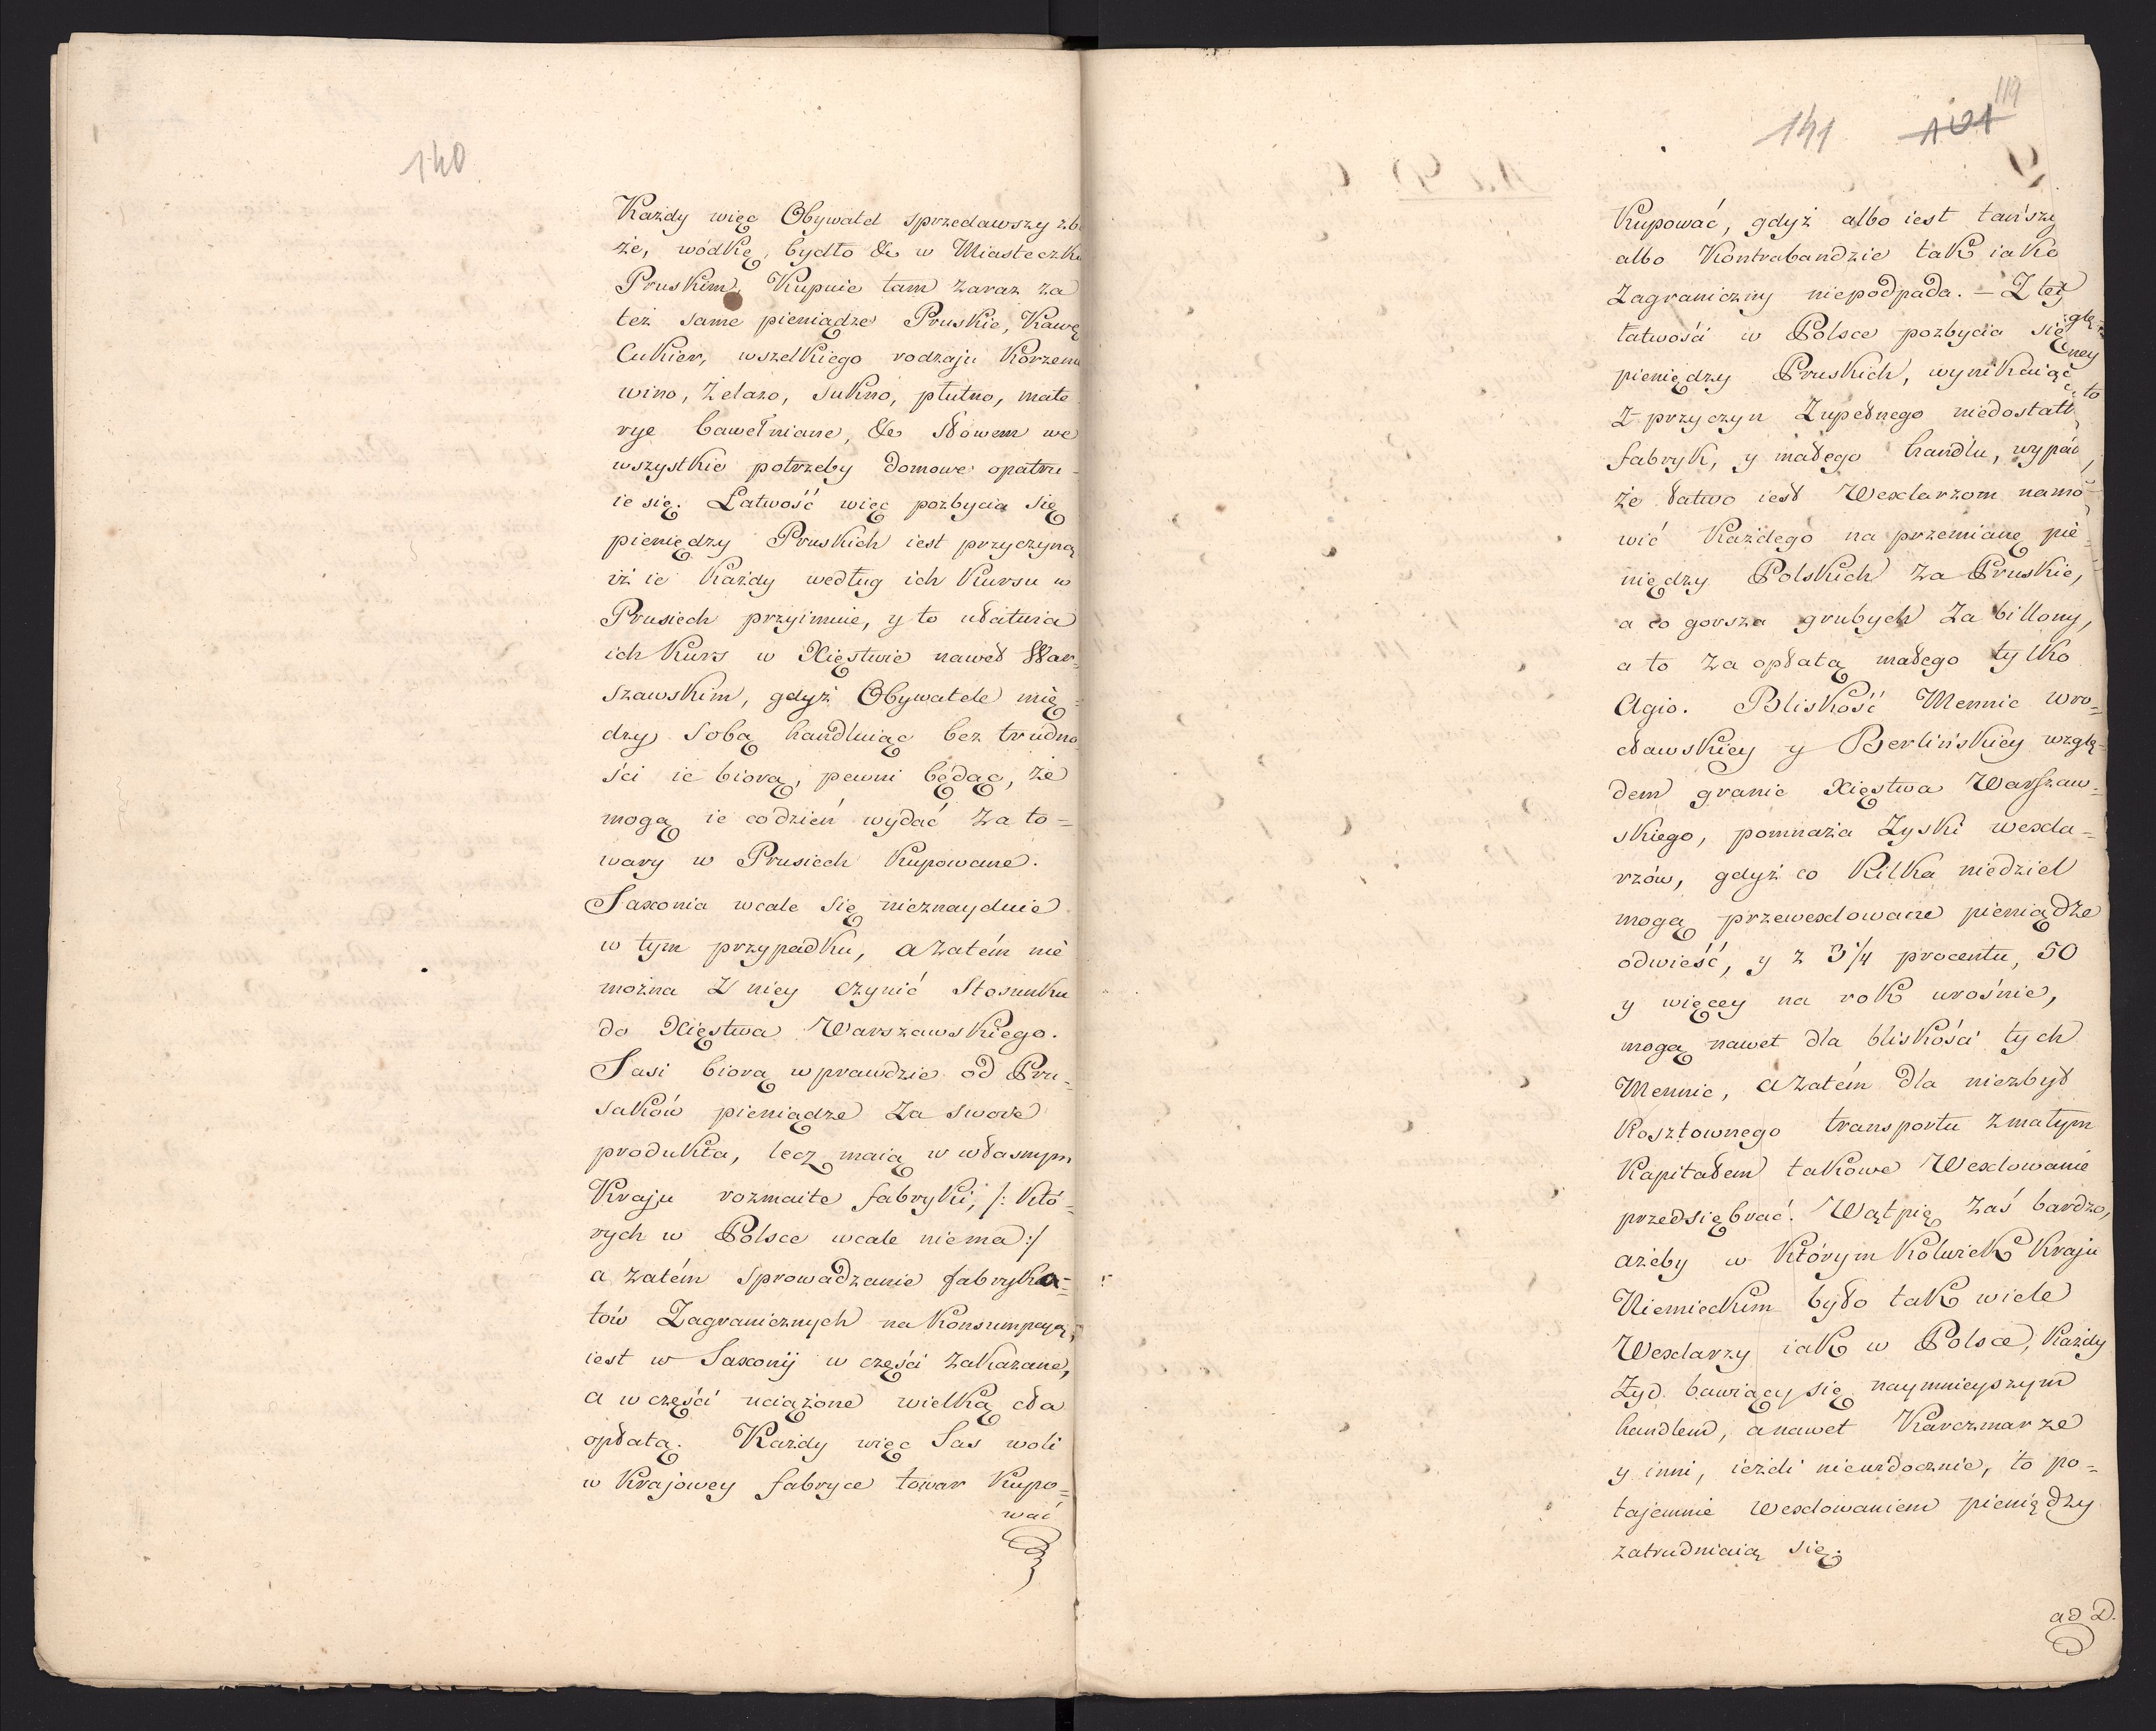 140
Każdy więc Obywatel sprzedawszy zbo
że, wódkę, bydło &c w Miasteczku
Pruskim, Kupuie tam zaraz za
też same pieniądze Pruskie, Kawę
Cukier, wszelkiego rodzaju Korzenie
wino, żelazo, sukno, płutno, mate
rye bawełniane, &c słowem we
wszystkie potrzeby domowe opatru-
ie się. Łatwość więc pozbycia się
pieniędzy Pruskich iest przyczyną
iż ie Każdy według ich Kursu w
Prusiech przyimuie, y to ułatwia
ich Kurs w Xięstwie nawet War-
szawskim, gdyż Obywatele mię-
dzy sobą handluiąc bez trudno
ści ie biorą, pewni będąc, że
mogą ie codzień wydać za to=
wary w Prusiech Kupowane.
Saxonia wcale się nieznayduie
w tym przypadku, a zatém nie
można z niey czynić Stosunku
do Xięstwa Warszawskiego.
Sasi biorą wprawdzie od Pru-
saków pieniądze za swoie
produkta, lecz maią w własnym
Kraju rozmaite fabryki, /: Któ-
rych w Polsce wcale niema :/
a zatém sprowadzanie fabryka=
tów Zagranicznych na Konsumpcyą,
iest w Saxonij w części zakazane,
a w części uciążone wielką cła
opłatą. Każdy więc Sas woli
w Krajowey fabryce towar Kupo=
wać
141 101 119
Kupować, gdyż albo iest tańszy
albo Kontrabandzie tak iako
Zagraniczny niepodpada. – Z tey
łatwości w Polsce pozbycia się
pieniędzy Pruskich, wynikaiąc
z przyczyn Zupełnego niedostatk
fabryk, y małego handlu, wypad
że łatwo iest Wexlarzom namó-
wić Każdego na przemianę pie-
niędzy Polskich za Pruskie,
a co gorsza grubych Za billony,
a to za opłatą małego tylko
Agio. Bliskość Mennic Wro=
cławskiey y Berlińskiey wzglę=
dem granic Xięstwa Warszaw-
skiego, pomnaża Zyski wexla-
rzów, gdyż co Kilka niedziel
mogą przewexlowane pieniądze
odwieść, y z 3 1/4 procentu, 50
y więcey na rok urośnie,
mogą nawet dla bliskości tych
Mennic, a zatém dla niezbyt
Kosztownego transportu z małym
Kapitałem takowe Wexlowanie
przedsiębrać. Wątpię zaś bardzo,
ażeby w Którym Kolwiek Kraju
Niemieckim było tak wiele
Wexlarzy iak w Polsce, Każdy
Żyd bawiący się naymnieyszym
handlem, a nawet Karczmarze
y inni, ieżeli niewidocznie, to po-
tajemnie Wexlowaniem pieniędzy
zatrudniaią się.
ad D.